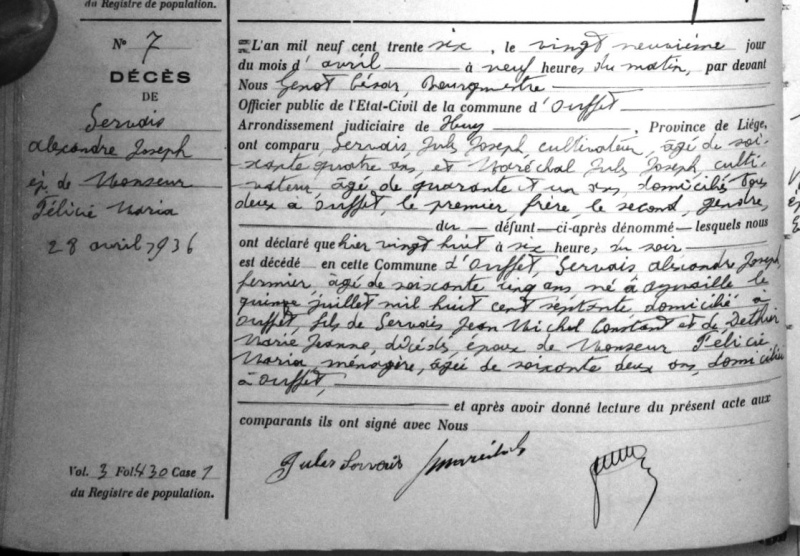 du Registre de population.
N° 7
DÉCÈS
DE
Servais
Alexandre Joseph
ép. de Monseur
Félicie Maria
28 avril 1936
Vol. 3 Fol. 430 Case 1
du Registre de population.
L'an mil neuf cent trente six, le vingt neuvième jour
du mois d'avril à neuf heures du matin, par devant
Nous Genot César, Bourgmestre
Officier public de l'Etat-Civil de la commune d'Ouffet
Arrondissement judiciaire de Huy, Province de Liége,
ont comparu Servais Jules Joseph cultivateur, âgé de soi-
xante quatre ans, et Maréchal Jules Joseph, culti-
vateur, âgé de quarante et un ans, domiciliés tous
deux à Ouffet, le premier frère, le second, gendre,
du défunt ci-après dénommé lesquels nous
ont déclaré que hier vingt huit à six heures du soir
est décédé en cette Commune d'Ouffet, Servais Alexandre Joseph,
fermier, âgé de soixante cinq ans né à Aywaille le
quinze juillet mil huit cent septante domicilié à
Ouffet, fils de Servais Jean Michel Constant et de Dethier
Marie Jeanne, décédés, époux de Monseur Félicie
Maria, ménagère, âgée de soixante deux ans, domiciliée
à Ouffet,
et après avoir donné lecture du présent acte aux
comparants ils ont signé avec Nous
Jules Servais J Maréchal